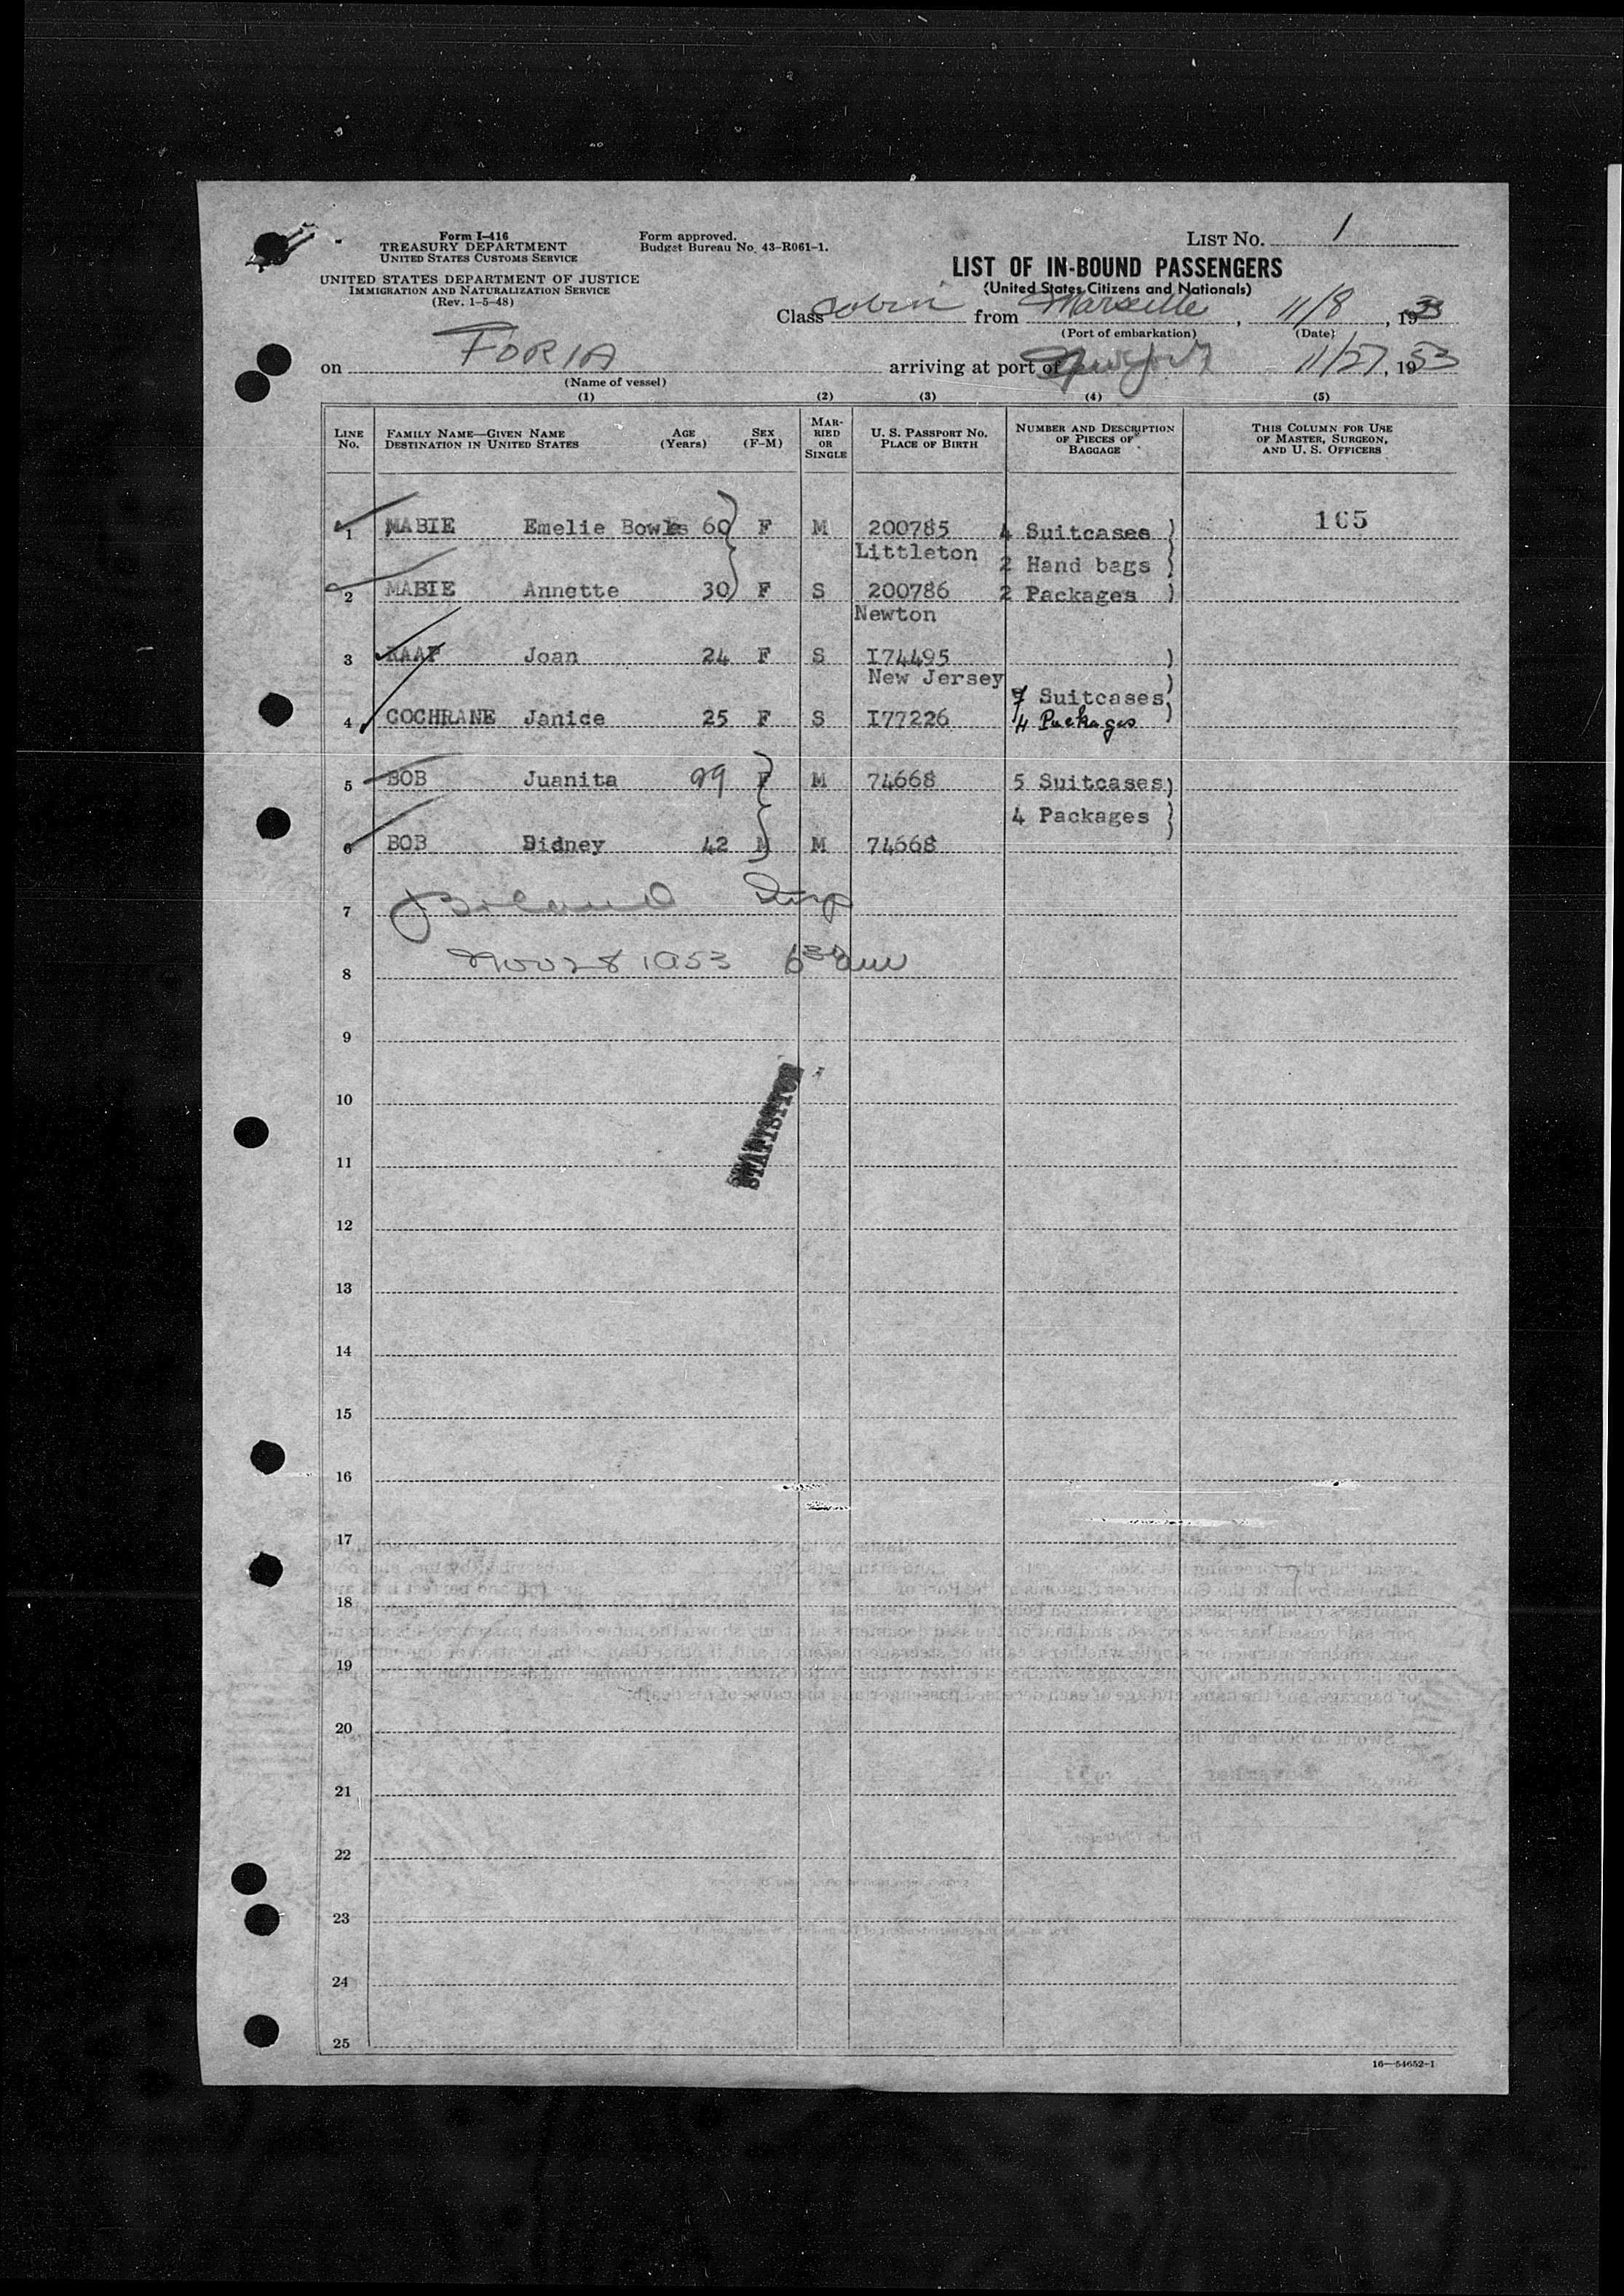 Form I-416
TREASURY DEPARTMENT
UNITED STATES CUSTOMS SERVICE
UNITED STATES DEPARTMENT OF JUSTICE
IMMIGRATION AND NATURALIZATION SERVICE
(Rev. 1-5-48)
Form approved.
Budget Bureau No. 43-R061-1.
LIST NO. 1
LIST OF IN-BOUND PASSENGERS
(United States Citizens and Nationals)
Class Cabin from Marseille, 11/8, 1953
(Port of embarkation) (Date)
on FORIA arriving at port of New York 11/27, 1953
(Name of vessel)
(1) (2) (3) (4) (5)
LINE NO. FAMILY NAME—GIVEN NAME DESTINATION IN UNITED STATES AGE (Years) SEX (F-M) MARRIED OR SINGLE U. S. PASSPORT NO. PLACE OF BIRTH NUMBER AND DESCRIPTION OF PIECES OF BAGGAGE THIS COLUMN FOR USE OF MASTER, SURGEON, AND U. S. OFFICERS
1 MABIE Emelie Bowles 60 F M 200785 4 Suitcases ) 165
Littleton 2 Hand bags )
2 MABIE Annette 30 F S 200786 2 Packages )
Newton
3 RAAF Joan 24 F S I74495 )
New Jersey )
7 Suitcases
4 COCHRANE Janice 25 F S I77226 4 Packages )
5 BOB Juanita 29 F M 74668 5 Suitcases )
4 Packages )
6 BOB Sidney 42 M M 74668
7 Insp
8 Nov 28 1953 6 30 am
9
10
STATISTICS
11
12
13
14
15
16
17
18
19
20
21
22
23
24
25
16—54652-1